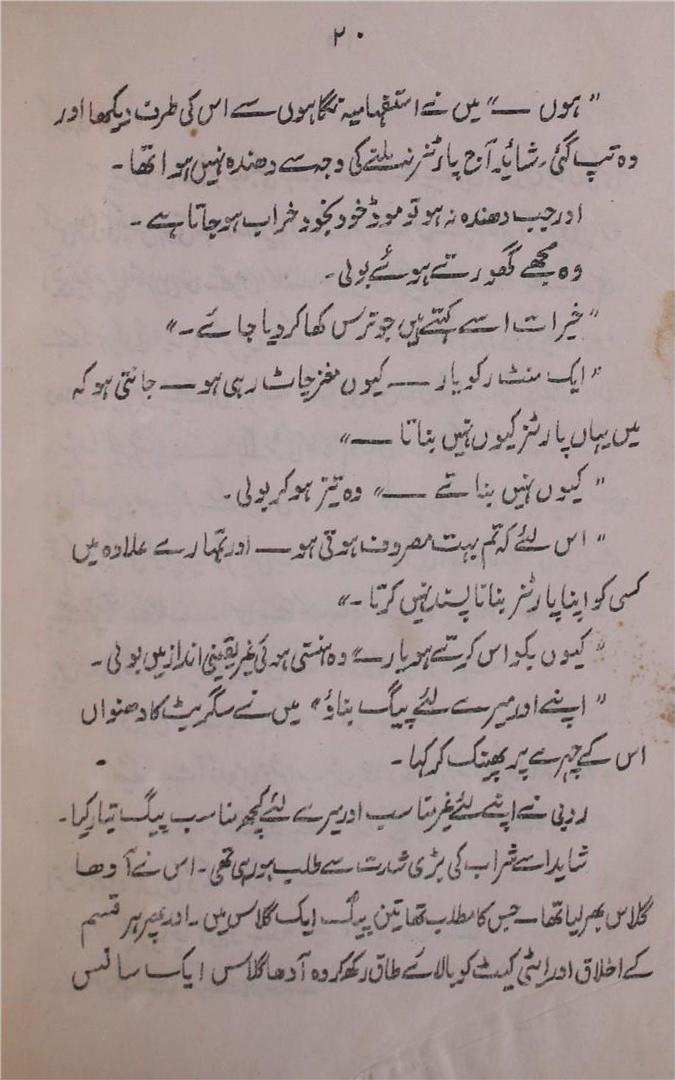 ۲۰
"ہوں ــــ" میں نے استفہامیہ نگاہوں سے اس کی طرف دیکھا اور
وہ تپ گئی۔ شائد آج پارٹنر نہ ملنے کی وجہ سے دھندہ نہیں ہوا تھا۔
اور جب دھندہ نہ ہو تو موڈ خود بخود خراب ہو جاتا ہے۔
وہ مجھے گھورتے ہوئے بولی۔
"خیرات اسے کہتے ہیں جو ترس کھا کر دیا جائے۔"
"ایک منٹ رکو یار ـــ کیوں مغز چاٹ رہی ہو ـــ جانتی ہو کہ
میں یہاں پارٹنر کیوں نہیں بناتا ـــ"
"کیوں نہیں بناتے ـــ" وہ تیز ہو کر بولی۔
"اس لئے کہ تم بہت مصروف ہوتی ہو ـــ اور تمہارے علاوہ میں
کسی کو اپنا پارٹنر بنانا پسند نہیں کرتا۔"
"کیوں بکواس کرتے ہو یار" وہ ہنستی ہوئی غیر یقینی انداز میں بولی۔
"اپنے اور میرے لئے پیگ بناؤ" میں نے سگریٹ کا دھنواں
اس کے چہرے پر پھینک کر کہا۔
روبی نے اپنے لئے غیر مناسب اور میرے لئے کچھ مناسب پیگ تیار کیا۔
شاید اسے شراب کی بڑی شدت سے طلب ہو رہی تھی۔ اس نے آدھا
گلاس بھر لیا تھا۔ جس کا مطلب تھا تین پیگ ایک گلاس میں۔ اور پھر ہر قسم
کے اخلاق اور ایٹی کیٹ کو بالائے طاق رکھ کر وہ آدھا گلاس ایک سانس